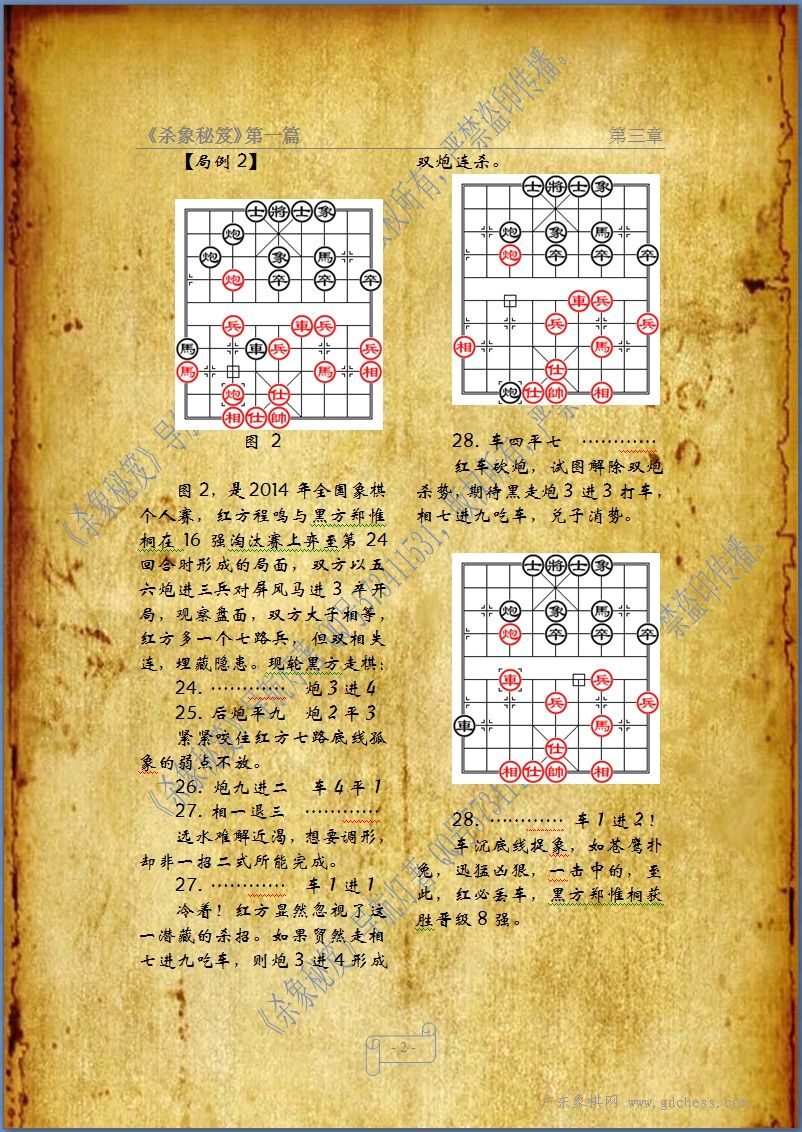 《杀象秘笈》第一篇
第三章
【局例 2】
士將士象
炮
炮 象 馬
炮 卒 卒 卒
兵 車 兵
馬 車 兵 兵
馬 馬 相
炮 仕
相 仕 帥
图 2
图 2，是 2014 年全国象棋
个人赛，红方程鸣与黑方郑惟
桐在 16 强淘汰赛上弈至第 24
回合时形成的局面，双方以五
六炮进三兵对屏风马进 3 卒开
局，观察盘面，双方大子相等，
红方多一个七路兵，但双相失
连，埋藏隐患。现轮黑方走棋：
24. ………… 炮 3 进 4
25. 后炮平九 炮 2 平 3
紧紧咬住红方七路底线孤
象的弱点不放。
26. 炮九进二 车 4 平 1
27. 相一退三 …………
远水难解近渴，想要调形，
却非一招二式所能完成。
27. ………… 车 1 进 1
冷着！红方显然忽视了这
一潜藏的杀招。如果贸然走相
七进九吃车，则炮 3 进 4 形成
双炮连杀。
士將士象
炮 象 馬
炮 卒 卒 卒
車 兵
兵 兵
相 馬
仕
炮 仕 帥 相
28. 车四平七 …………
红车砍炮，试图解除双炮
杀势，期待黑走炮 3 进 3 打车，
相七进九吃车，兑子消势。
士將士象
炮 象 馬
炮 卒 卒 卒
車 兵
兵 兵
車 馬
仕
相 仕 帥 相
28. ………… 车 1 进 2！
车沉底线捉象，如苍鹰扑
兔，迅猛凶狠，一击中的，至
此，红必丢车，黑方郑惟桐获
胜晋级 8 强。
- 2 -
广东象棋网 www.gdchess.com